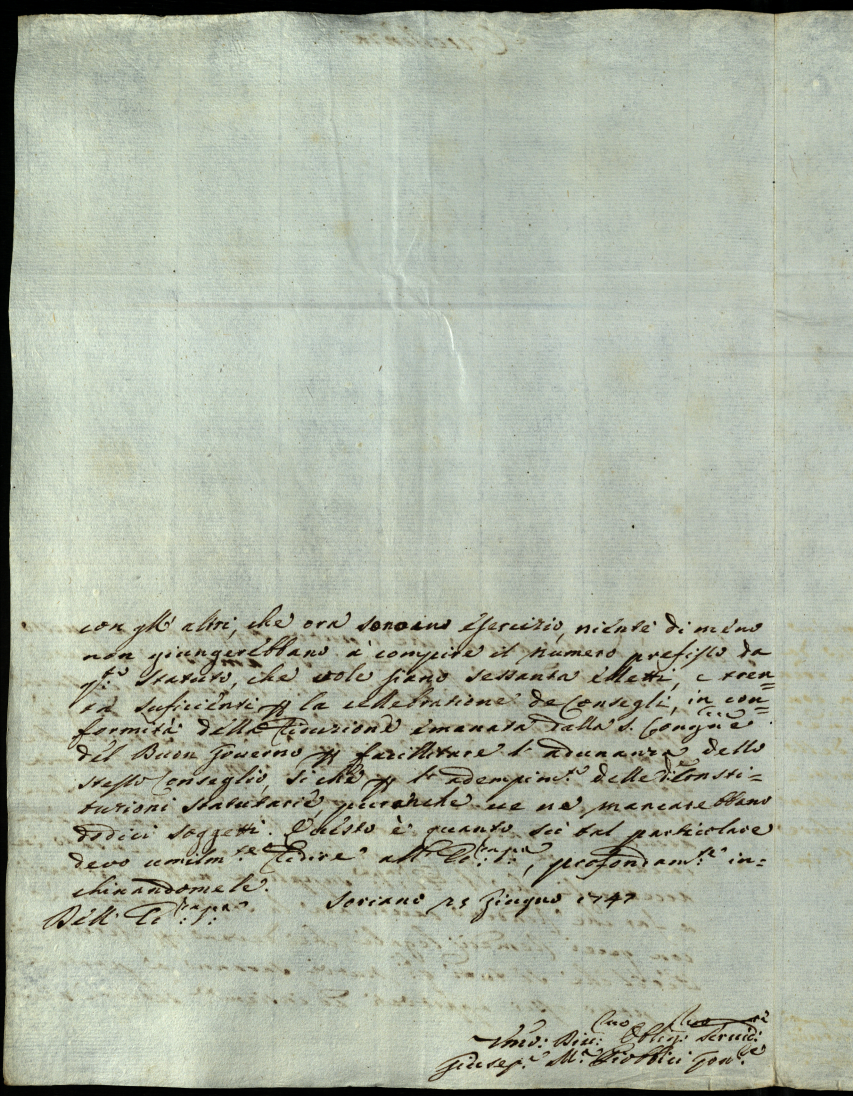 con gli altri, che ora sono in esercizio, niente di meno
non giungerebbano à compire il numero prefisso da
q.to Statuto, che vole siano sessanta eletti, e tren=
ta suficienti p la cellebratione de Consegli, in con=
formità della emanata dalla S. Cong.ne
del Buon Governo p facillitare l'adunanza dello
stesso Conseglio, si che p l'adempim.to delle d.e Consti=
tuzioni Statutarie, ve ne mancarebbano
dodici soggetti. Questo è quanto sù tal particolare
devo umilm.te all' , profondam.te in=
chinandomele.
Dell' Soriano 25 Giugno 1747
Umo: Div: Obblig: Servid:
Giusep.e M.a Gov.re